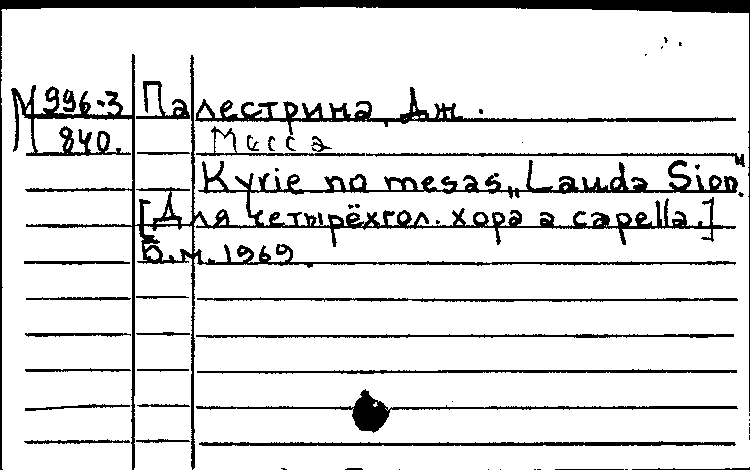 М 996-3 Палестрина, Дж.
840. Месса
Kyrie no mesas „Lauda Sion".
[Для четырёхгол. хора a capella.]
Б.м. 1969.